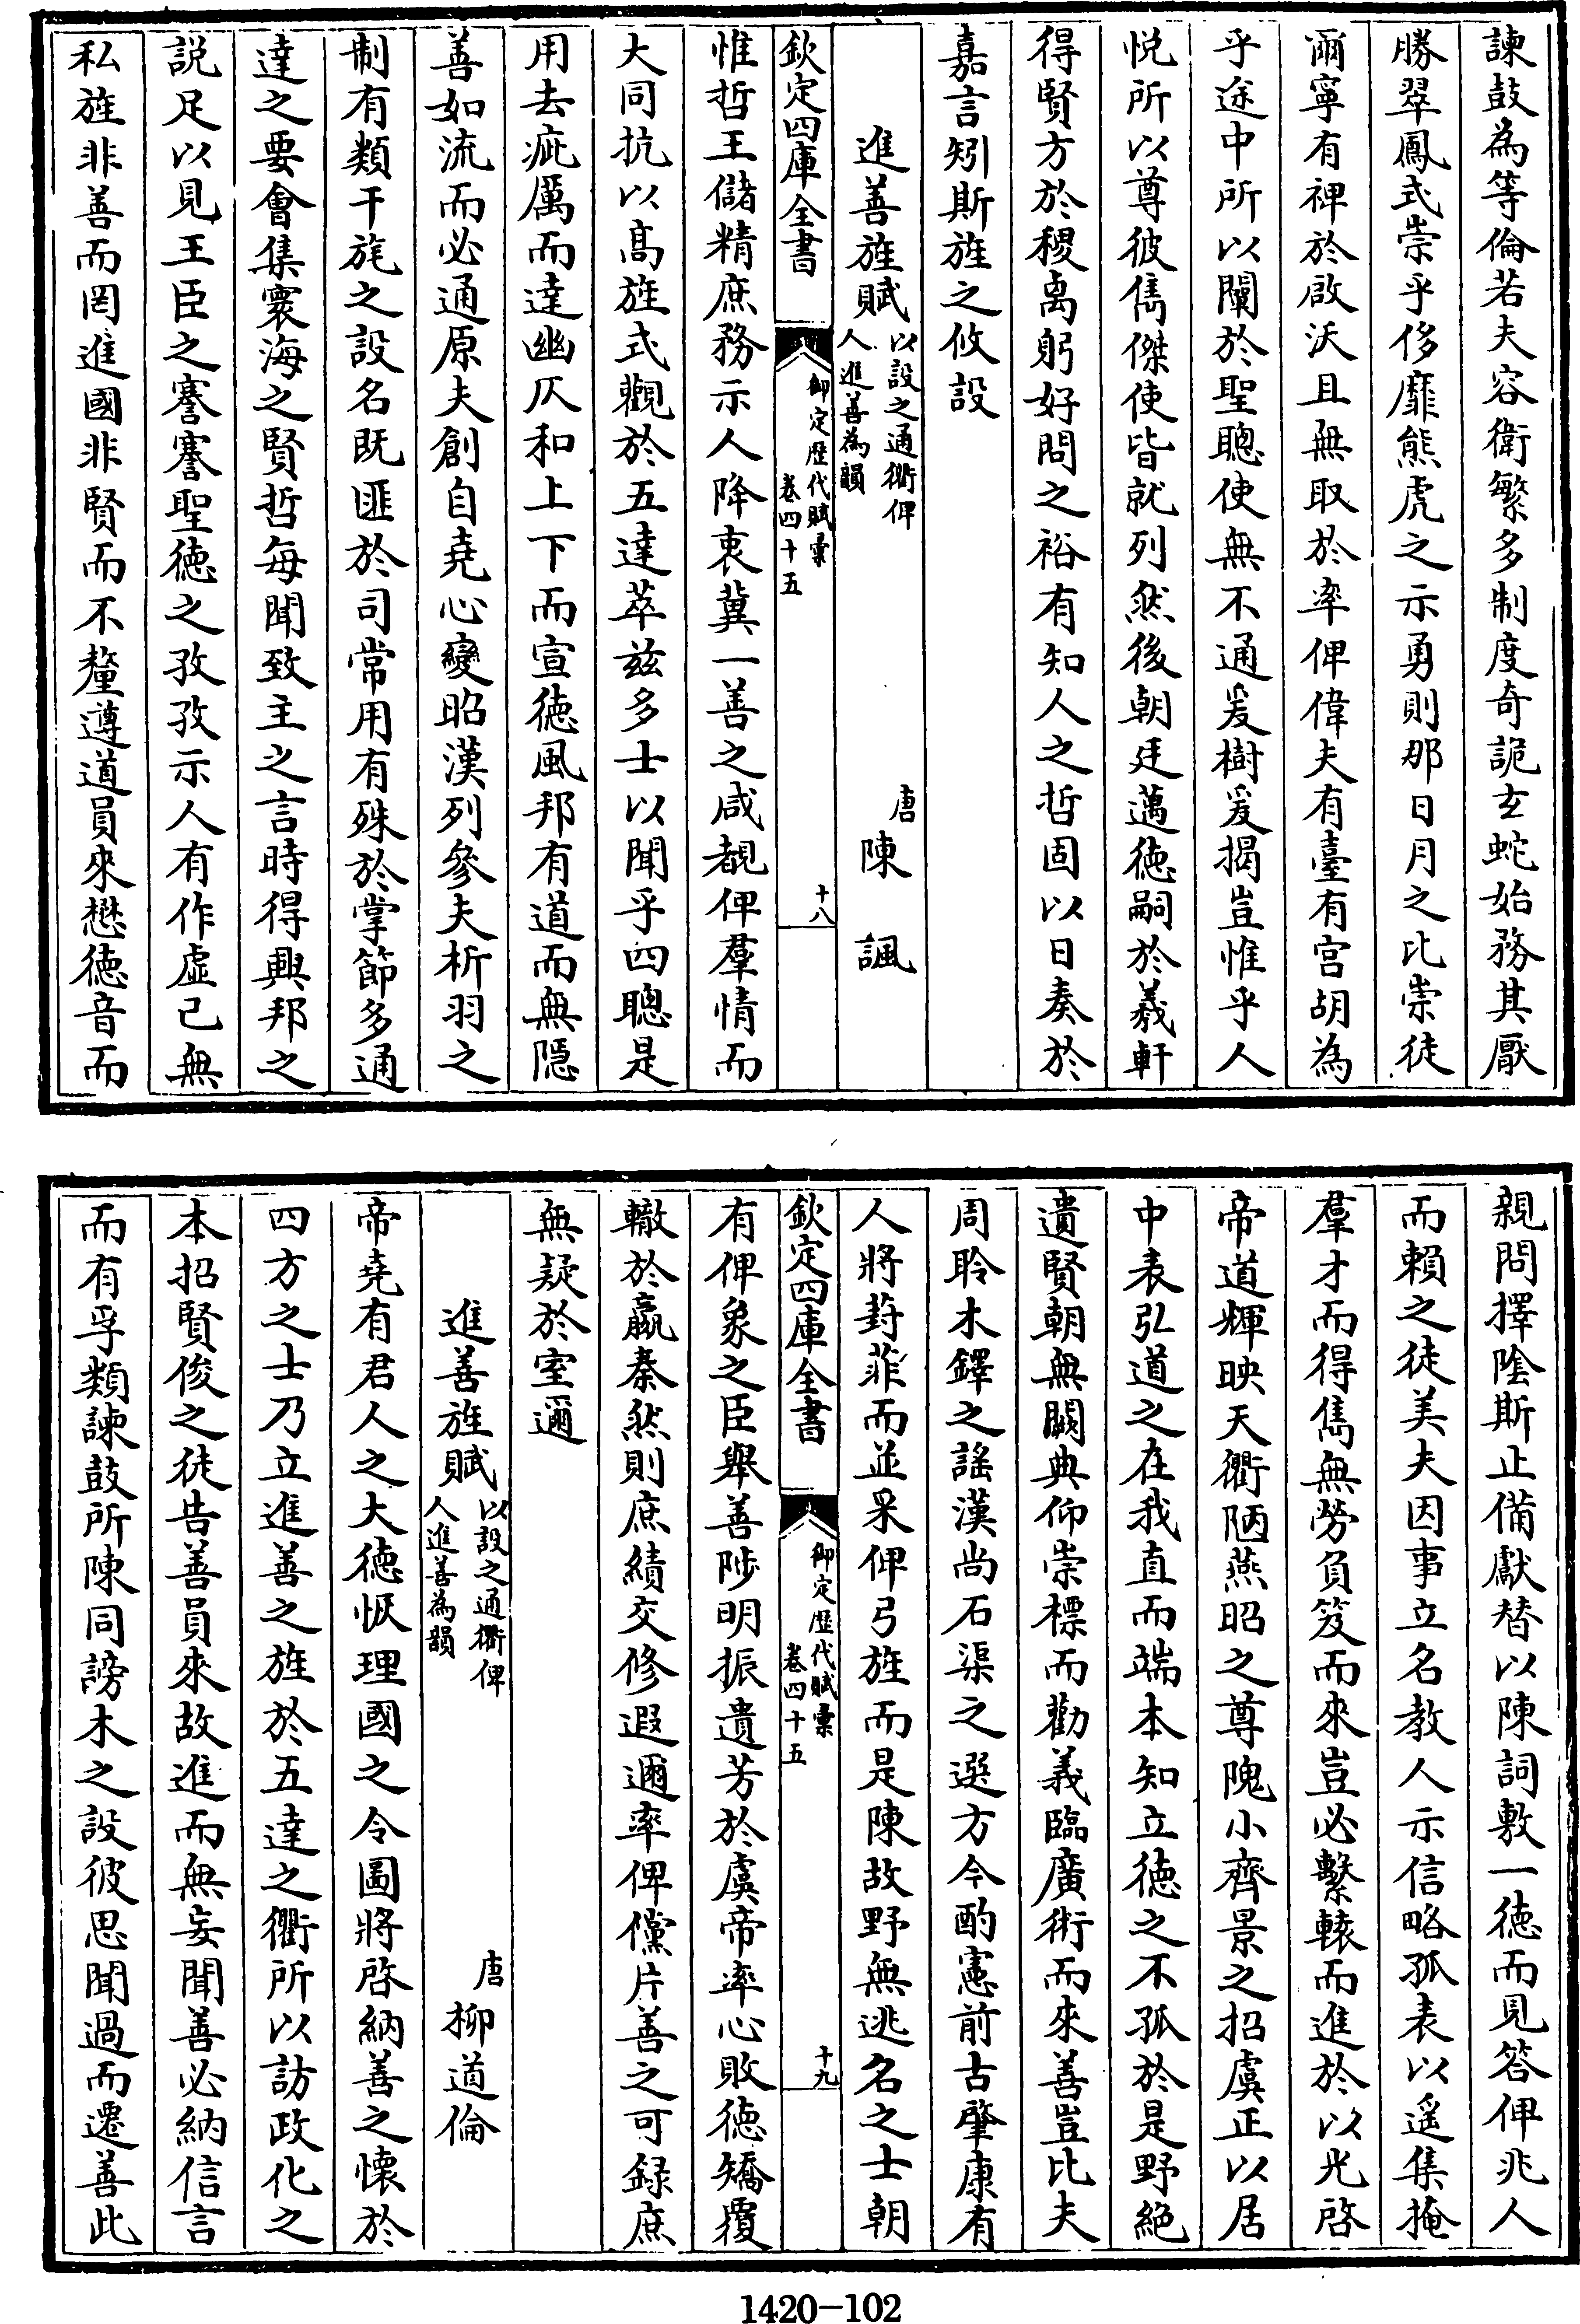 諫鼓為等倫若夫容衛繁多制度奇詭玄蛇始務其厭
勝翠鳳式崇乎侈靡熊虎之示勇則那日月之比崇徒
爾寧有裨於啟沃且無取於率俾偉夫有臺有宫胡為
乎途中所以闡於聖聰使無不通爰樹爰揭豈惟乎人
悦所以尊彼雋傑使皆就列然後朝廷邁徳嗣於羲軒
得賢方於稷卨躬好問之裕有知人之哲固以日奏於
嘉言矧斯旌之攸設
進善旌賦
以設之通衢俾
人進善為韻
唐
陳諷
欽定四庫全書
御定歴代賦彚
卷四十五
十八
惟哲王儲精庶務示人降衷冀一善之咸覩俾羣情而
大同抗以髙旌式觀於五達萃兹多士以聞乎四聰是
用去疵厲而達幽仄和上下而宣徳風邦有道而無隠
善如流而必通原夫創自堯心變昭漢列參夫析羽之
制有類干旄之設名既匪於司常用有殊於掌節多通
達之要會集寰海之賢哲每聞致主之言時得興邦之
説足以見王臣之謇謇聖徳之孜孜示人有作虚己無
私旌非善而罔進國非賢而不釐遵道員來懋徳音而
親問擇隂斯止備獻替以陳詞敷一徳而見答俾兆人
而賴之徒美夫因事立名教人示信略孤表以遥集掩
羣才而得雋無勞負笈而來豈必繫轅而進於以光啓
帝道輝映天衢陋燕昭之尊隗小齊景之招虞正以居
中表弘道之在我直而端本知立徳之不孤於是野絶
遺賢朝無闕典仰崇標而勸義臨廣術而來善豈比夫
周聆木鐸之謡漢尚石渠之選方今酌憲前古肇康有
人將葑菲而並采俾弓旌而是陳故野無逃名之士朝
欽定四庫全書
御定歴代賦彚
卷四十五
十九
有俾象之臣舉善陟明振遺芳於虞帝率心敗徳矯覆
轍於嬴秦然則庶績交修遐邇率俾儻片善之可録庶
無疑於室邇
進善旌賦
以設之通衢俾
人進善為韻
唐
柳道倫
帝堯有君人之大徳恢理國之令圖將啓納善之懐於
四方之士乃立進善之旌於五達之衢所以訪政化之
本招賢俊之徒告善員來故進而無妄聞善必納信言
而有孚類諫鼓所陳同謗木之設彼思聞過而遷善此
1420-102